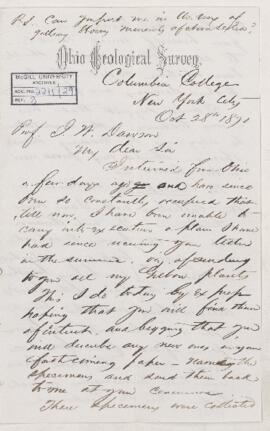 P.S. Can you put me in the way of
getting Honey
Ohio Geological Survey,
McGILL UNIVERSITY
ARCHIVES
ACC. NO. 2211/29
REF. 2
Columbia College
New York City
Oct 28th 1871
Prof. J. W. Dawson
My dear Sir
I returned from Ohio
a few days ago and have since
been so constantly occupied that
till now, I have been unable to
carry into execution a plan I have
had since receiving your letter
in the summer, viz. of sending
to you all my Gilboa plants
This, I do today by Express
hoping that you will find them
of interest and begging that you
will describe any new ones in your
forthcoming paper - name the
specimens and send them back
to me at your convenience
These specimens were collected